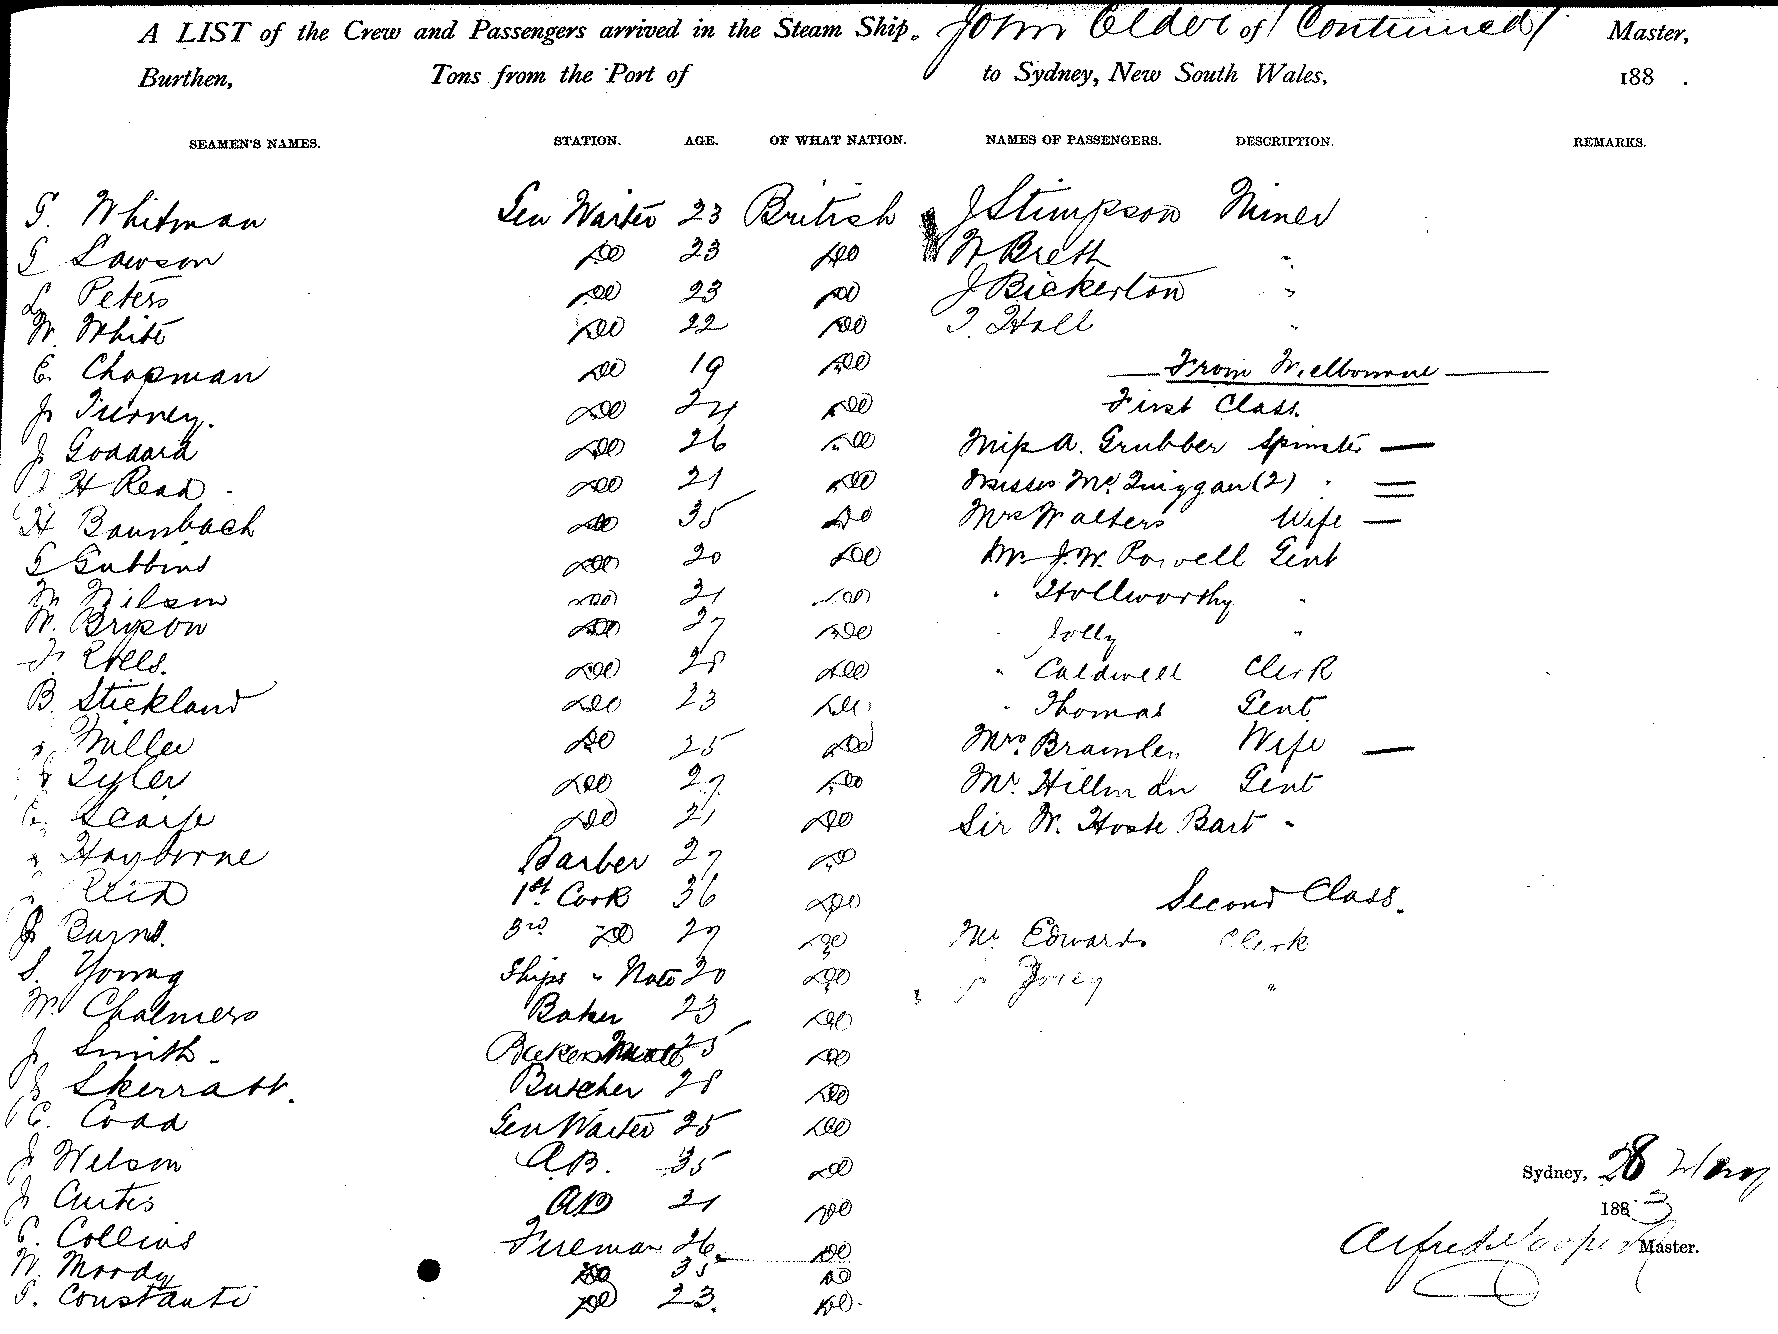 A LIST of the Crew and Passengers arrived in the Steam Ship. John Elder of (Continued) Master,
Burthen, Tons from the Port of to Sydney, New South Wales, 188 .
SEAMEN'S NAMES. STATION. AGE. OF WHAT NATION. NAMES OF PASSENGERS. DESCRIPTION. REMARKS.
G. Whitman Gen Waiter 23 British J Stimpson Miner
G Lawson Do 23 Do W Breth "
L Peters Do 23 Do J Bickerton "
W. White Do 22 Do T. Hall "
E. Chapman Do 19 Do From Melbourne
J. Turney. Do 24 Do First Class.
J Goddard Do 26 Do Miss A. Grubber Spinster —
H Read Do 21 Do Misses Mc Quiggan (2) "
H Baumbach Do 35 Do Mrs Walters Wife —
G Gubbins Do 20 Do Mr J.W. Powell Gent
W Wilson Do 21 Do " Hollworthy "
W. Bryson Do 27 Do " Jolly "
Do 28 Do " Caldwell Clerk
B. Stickland Do 23 Do " Thomas Gent
Miller Do 25 Do Mrs. Bramley Wife —
Tyler Do 27 Do Mr. Hillman Gent
Do 21 Do Sir W. Hoste Bart "
Hayborne Barber 27 Do
Reid 1st. Cook 36 Do Second Class.
J. Burns. 3rd Do 27 Do Mr Edwards Clerk
S. Young Ships " Mate 20 Do "
W. Chalmers Baker 23 Do
J. Smith Bakers Mate 25 Do
J Skerratt. Butcher 28 Do
C. Coad Gen Waiter 25 Do
J Wilson A.B. 35 Do Sydney, 28 May
J. Curtis AB 21 Do 1883
C. Collins Fireman 26 Do Alfred Cooper Master.
W. Moody Do 35 Do
Constanti Do 23. Do